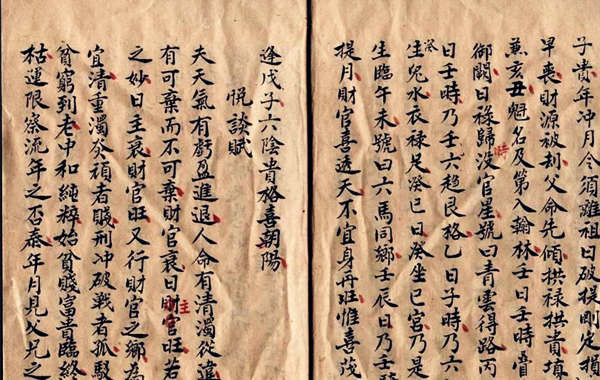 子貴年沖月令須離祖曰破提則定損
早喪財源被刦父命先傾拱祿拱貴填
兼亥丑魁名及第入翰林壬日壬時疊
御闕曰祿歸時沒官星號曰青雲得路丙
日壬時乃壬六趨艮格乙日子時乃六
癸生兔水衣祿足癸巳曰癸坐巳宮乃是
生臨午未號曰六馬同鄉壬辰日乃壬
提月財官喜透天不宜身丹旺惟喜茂
逢戊子六陰貴格喜朝陽
悅談賦
夫天氣有虧盈進退人命有清濁從違
有可棄而不可棄財官衰日主財官旺若
之妙日主衰財官旺又行財官之鄉為
宜清重濁癸頑者賤刑冲破戰者孤
貧窮到老中和純粹始貧賤富貴臨終
枯運限察流年之否泰年月見父兄之